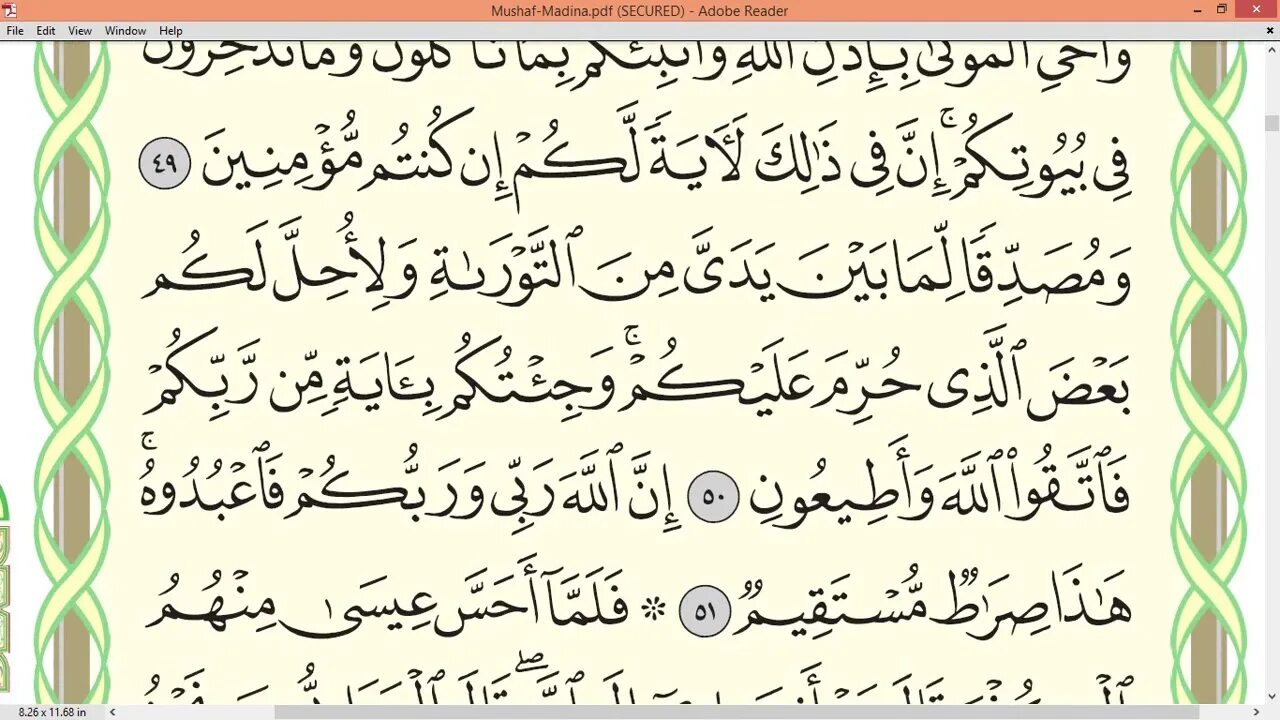 Mushaf-Madina.pdf (SECURED) - Adobe Reader
File Edit View Window Help
وَأُحْيِ الْمَوْتَىٰ بِإِذْنِ اللَّهِ وَأُنَبِّئُكُم بِمَا تَأْكُلُونَ وَمَا تَدَّخِرُونَ
فِي بُيُوتِكُمْ ۚ إِنَّ فِي ذَٰلِكَ لَـَٔايَةً لَّكُمْ إِن كُنتُم مُّؤْمِنِينَ ٤٩
وَمُصَدِّقًا لِّمَا بَيْنَ يَدَىَّ مِنَ ٱلتَّوْرَىٰةِ وَلِأُحِلَّ لَكُم
بَعْضَ ٱلَّذِى حُرِّمَ عَلَيْكُمْ ۚ وَجِئْتُكُم بِـَٔايَةٍ مِّن رَّبِّكُمْ
فَٱتَّقُوا۟ ٱللَّهَ وَأَطِيعُونِ ٥٠ إِنَّ ٱللَّهَ رَبِّى وَرَبُّكُمْ فَٱعْبُدُوهُ ۚ
هَٰذَا صِرَٰطٌ مُّسْتَقِيمٌ ٥١ ۞ فَلَمَّآ أَحَسَّ عِيسَىٰ مِنْهُمُ
8.26 x 11.68 in